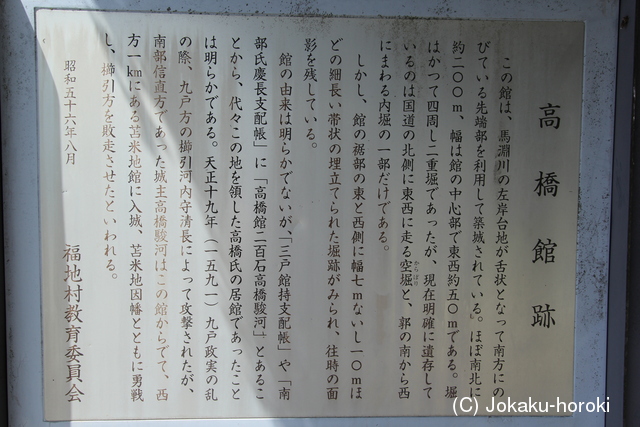 高橋館跡
この館は、馬淵川の左岸台地が舌状となって南方にの
びている先端部を利用して築城されている。ほぼ南北に
約二〇〇m、幅は館の中心部で東西約五〇mである。堀
はかつて四周し二重堀であったが、現在明確に遺存して
いるのは国道の北側に東西に走る空堀と、郭の南から西
にまわる内堀の一部だけである。
しかし、館の裾部の東と西側に幅七mないし一〇mほ
どの細長い帯状の埋立てられた堀跡がみられ、往時の面
影を残している。
館の由来は明らかでないが、「三戸館持支配帳」や「南
部氏慶長支配帳」に「高橋館二百石高橋駿河」とあるこ
とから、代々この地を領した高橋氏の居館であったこと
は明らかである。天正十九年(一五九一)九戸政実の乱
の際、九戸方の櫛引河内守清長によって攻撃されたが、
南部信直方であった城主高橋駿河はこの館からでて、西
方一kmにある苫米地館に入城、苫米地因幡とともに勇戦
し、櫛引方を敗走させたといわれる。
昭和五十六年八月
福地村教育委員会
(C) Jokaku-horoki